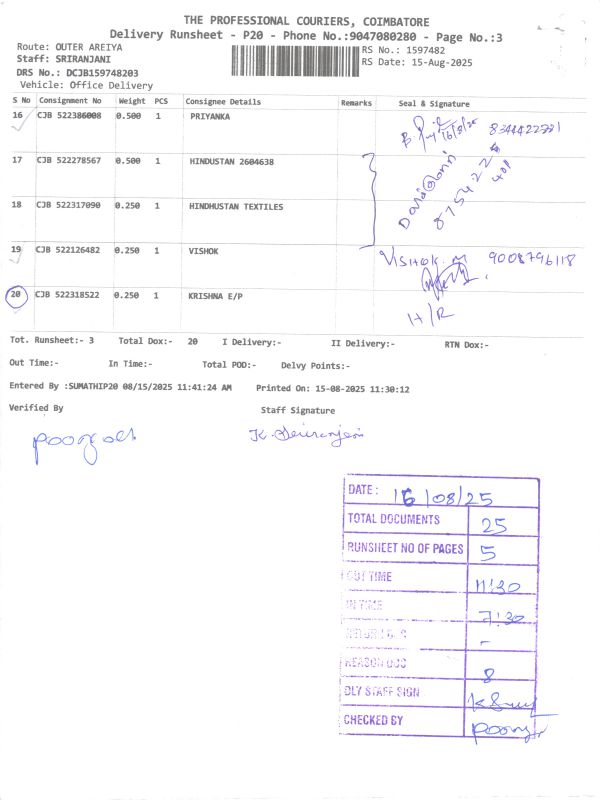 THE PROFESSIONAL COURIERS, COIMBATORE
Delivery Runsheet - P20 - Phone No.:9047080280 - Page No.:3
Route: OUTER AREIYA
RS No.: 1597482
Staff: SRIRANJANI
RS Date: 15-Aug-2025
DRS No.: DCJB159748203
Vehicle: Office Delivery
S No Consignment No Weight PCS Consignee Details Remarks Seal & Signature
16 CJB 522386008 0.500 1 PRIYANKA
16/8/25 8344422731
17 CJB 522278567 0.500 1 HINDUSTAN 2604638
18 CJB 522317090 0.250 1 HINDHUSTAN TEXTILES
19 CJB 522126482 0.250 1 VISHOK VISHOK. M 9008796118
20 CJB 522318522 0.250 1 KRISHNA E/P
H/R
Tot. Runsheet:- 3 Total Dox:- 20 I Delivery:- II Delivery:- RTN Dox:-
Out Time:- In Time:- Total POD:- Delvy Points:-
Entered By :SUMATHIP20 08/15/2025 11:41:24 AM Printed On: 15-08-2025 11:30:12
Verified By Staff Signature
DATE : 16/08/25
TOTAL DOCUMENTS 25
RUNSHEET NO OF PAGES 5
OUT TIME 11:30
IN TIME 7:30
-
REASON DOC 8
DLY STAFF SIGN
CHECKED BY